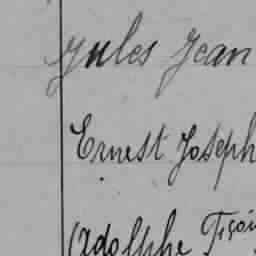 Jules Jean
Ernest Joseph
Adolphe Fçois